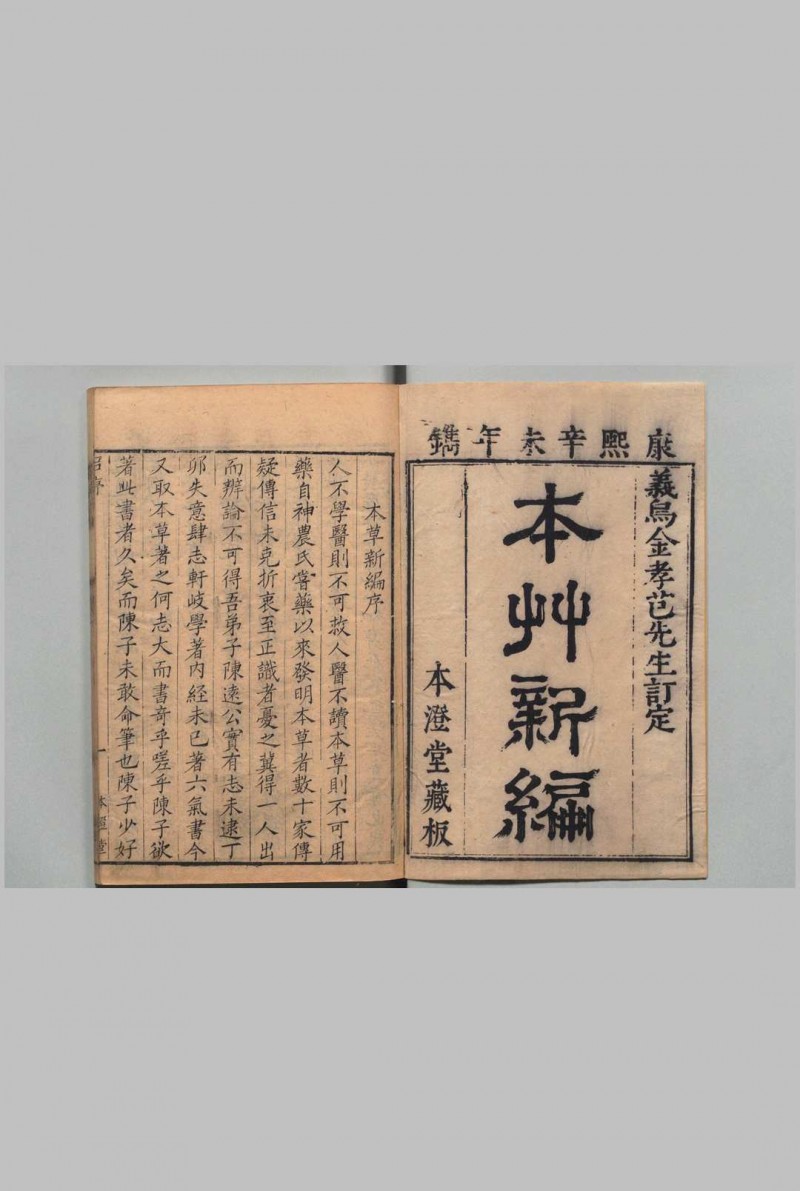 康熙辛未年鐫
義烏金孝芑先生訂定
本艸新編
本澄堂藏板
本草新編序
人不學醫則不可救人醫不讀本草則不可用
藥自神農氏嘗藥以來發明本草者數十家傳
疑傳信未克折衷至正識者憂之冀得一人出
而辨論不可得吾弟子陳遠公實有志未逮丁
卯失意肆志軒岐學著內經未已著六氣書今
又取本草著之何志大而書奇乎嗟乎陳子欲
著此書者久矣而陳子未敢命筆也陳子少好